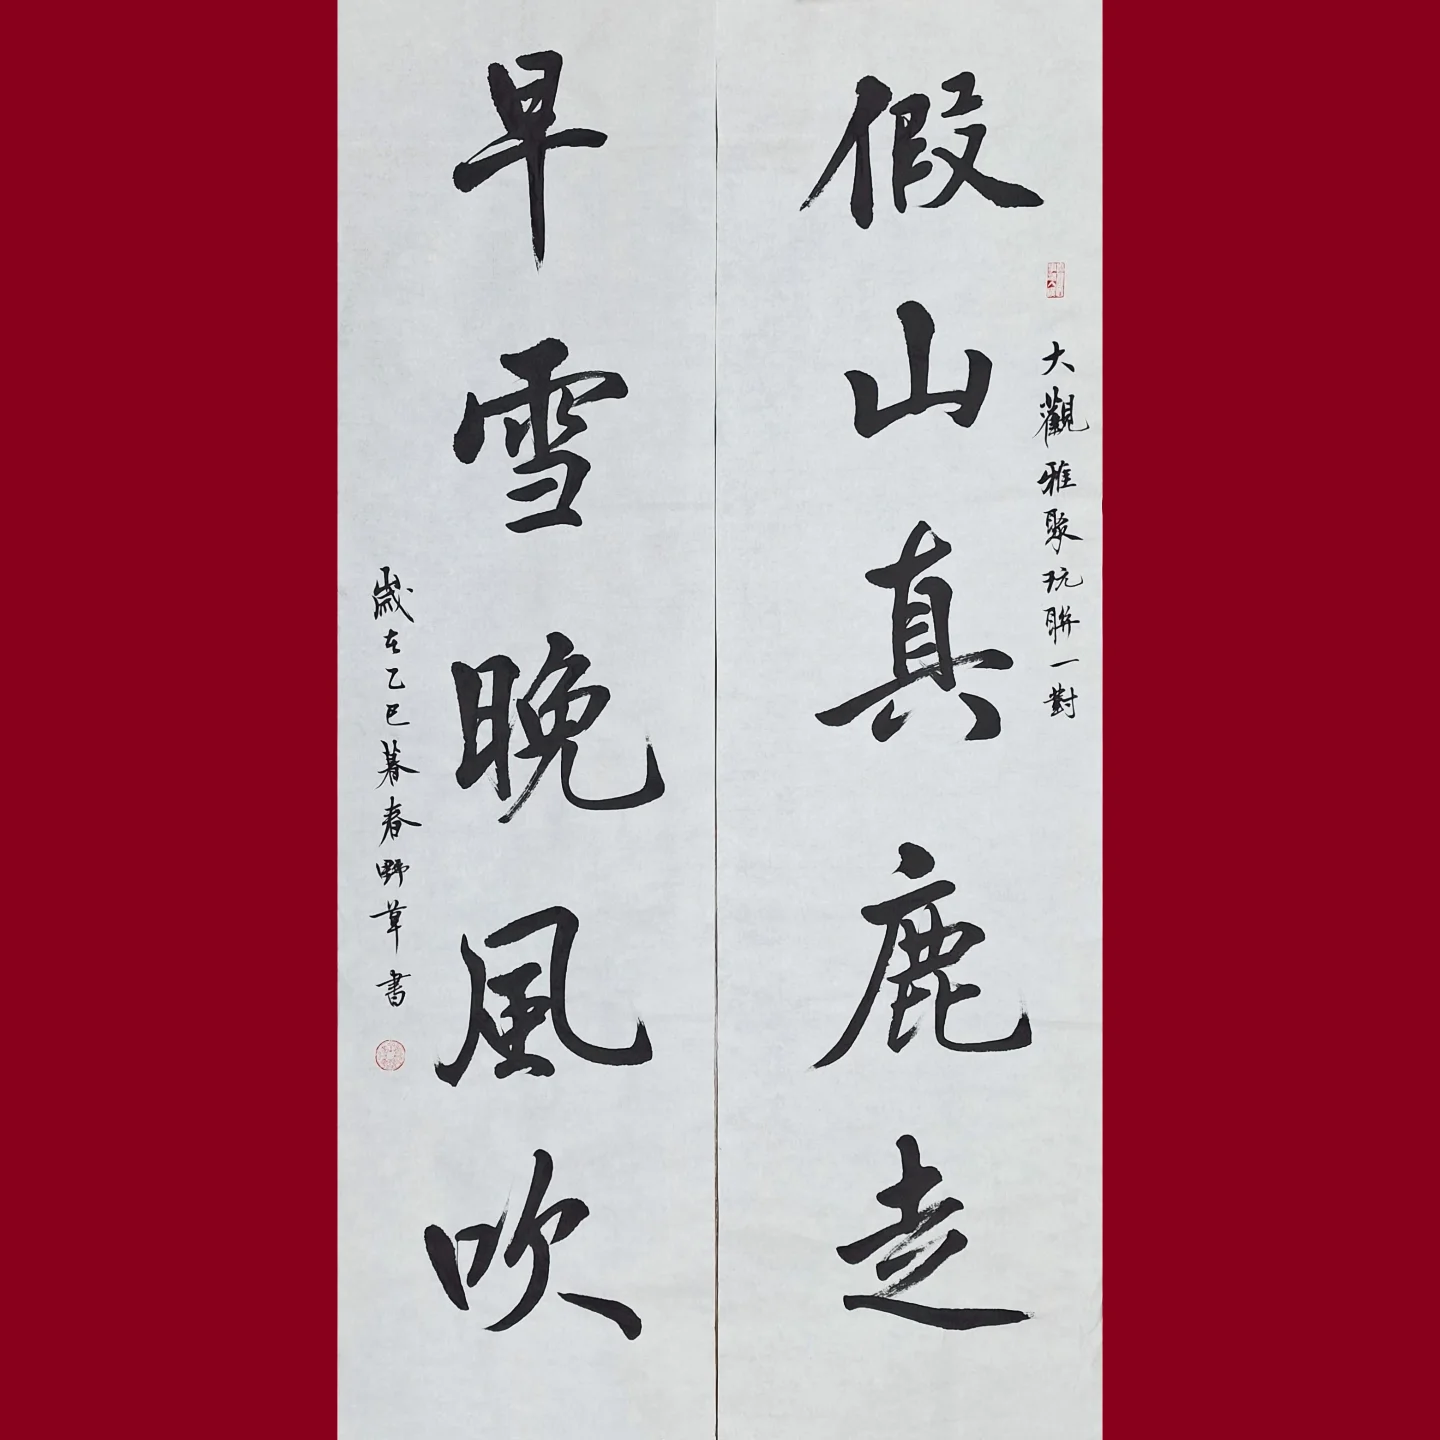 假山真鹿走
大觀雅聚玩聯一對
早雪晚風吹
歲在乙巳暮春野草書